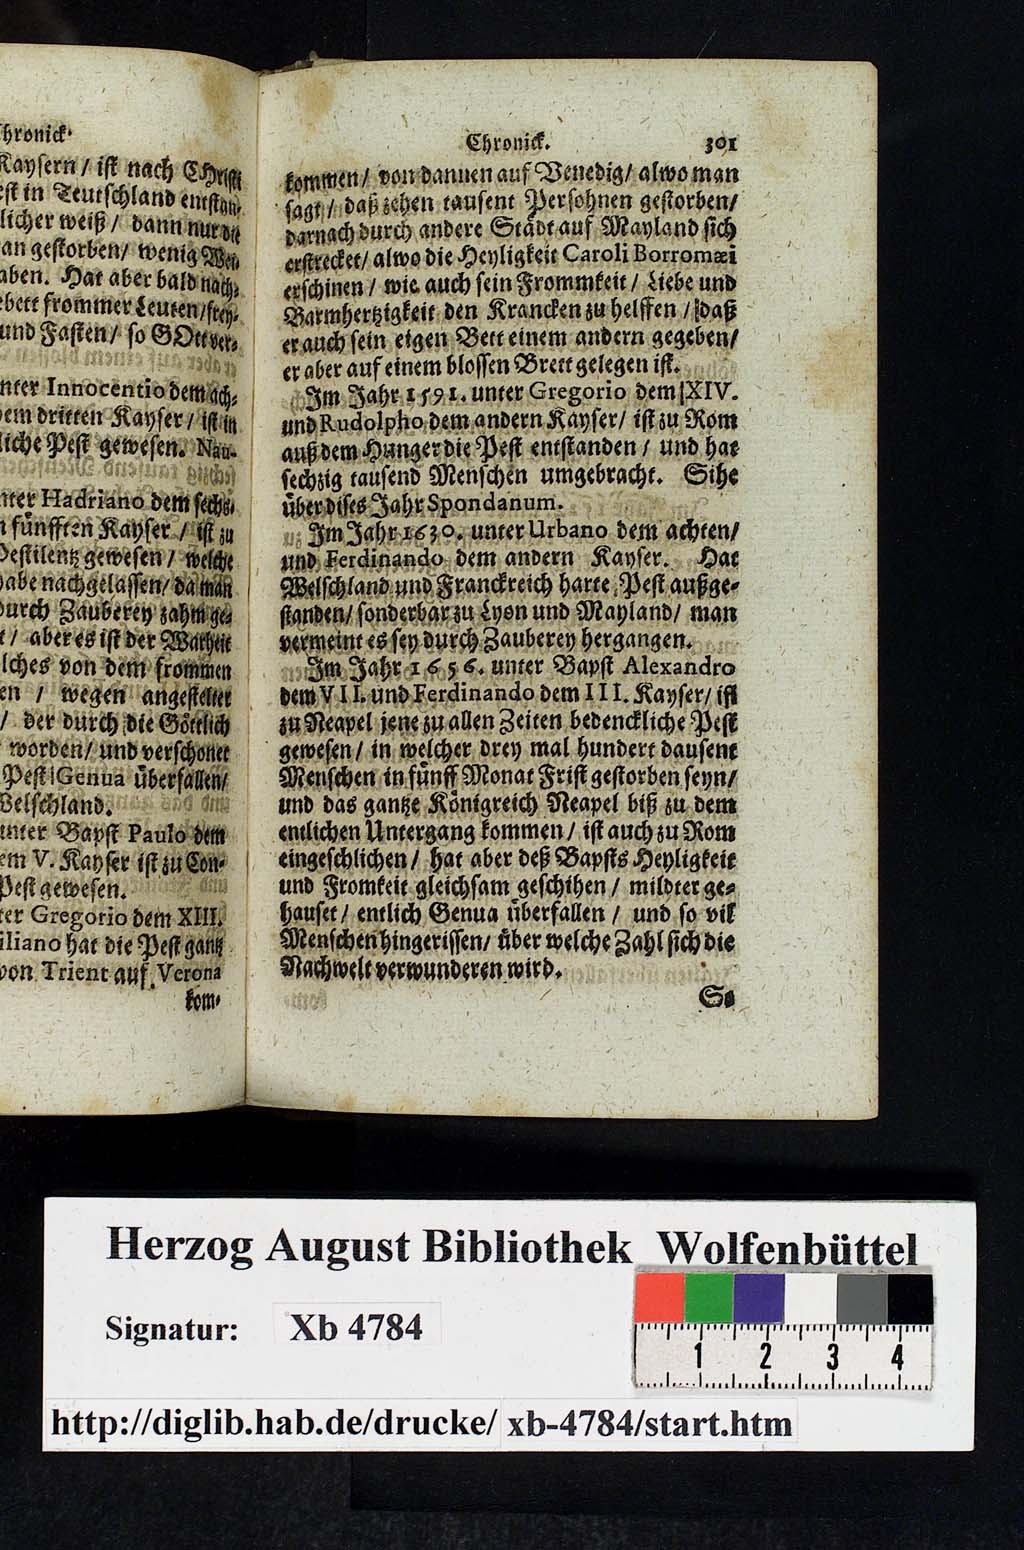 hronick.
Kaysern / ist nach CHristi
est in Teutschland entstan-
licher weiß / dann nur die
an gestorben / wenig Wei-
aben. Hat aber bald nach-
ebett frommer Leuten / frey-
und Fasten / so GOtt ver-
nter Innocentio dem ach-
em dritten Kayser / ist in
liche Pest gewesen. Nau-
nter Hadriano dem sechs-
n fünfften Kayser / ist zu
Pestilentz gewesen / welche
habe nachgelassen / da man
durch Zauberey zahm ge-
t / aber es ist der Warheit
lches von dem frommen
en / wegen angestelter
/ der durch die Göttlich
worden / und verschonet
Pest Genua überfallen /
Welschland.
unter Bapst Paulo dem
em V. Kayser ist zu Con-
Pest gewesen.
ter Gregorio dem XIII.
iliano hat die Pest gantz
von Trient auf Verona
kom-
Chronick. 301
kommen / von dannen auf Venedig / alwo man
sagt / daß zehen tausent Persohnen gestorben /
darnach durch andere Städt auf Mayland sich
erstrecket / alwo die Heyligkeit Caroli Borromæi
erschinen / wie auch sein Frommkeit / Liebe und
Barmhertzigkeit den Krancken zu helffen / daß
er auch sein eigen Bett einem andern gegeben /
er aber auf einem blossen Brett gelegen ist.
Im Jahr 1591. unter Gregorio dem XIV.
und Rudolpho dem andern Kayser / ist zu Rom
auß dem Hunger die Pest entstanden / und hat
sechzig tausend Menschen umgebracht. Sihe
über dises Jahr Spondanum.
Im Jahr 1630. unter Urbano dem achten /
und Ferdinando dem andern Kayser. Hat
Welschland und Franckreich harte Pest außge-
standen / sonderbar zu Lyon und Mayland / man
vermeint es sey durch Zauberey hergangen.
Im Jahr 1656. unter Bapst Alexandro
dem VII. und Ferdinando dem III. Kayser / ist
zu Neapel jene zu allen Zeiten bedenckliche Pest
gewesen / in welcher drey mal hundert dausent
Menschen in fünff Monat Frist gestorben seyn /
und das gantze Königreich Neapel biß zu dem
entlichen Untergang kommen / ist auch zu Rom
eingeschlichen / hat aber deß Bapsts Heyligkeit
und Fromkeit gleichsam geschihen / mildter ge-
hauset / entlich Genua überfallen / und so vil
Menschen hingerissen / über welche Zahl sich die
Nachwelt verwunderen wird.
So
Herzog August Bibliothek Wolfenbüttel
Signatur: Xb 4784
1 2 3 4
http://diglib.hab.de/drucke/ xb-4784/start.htm